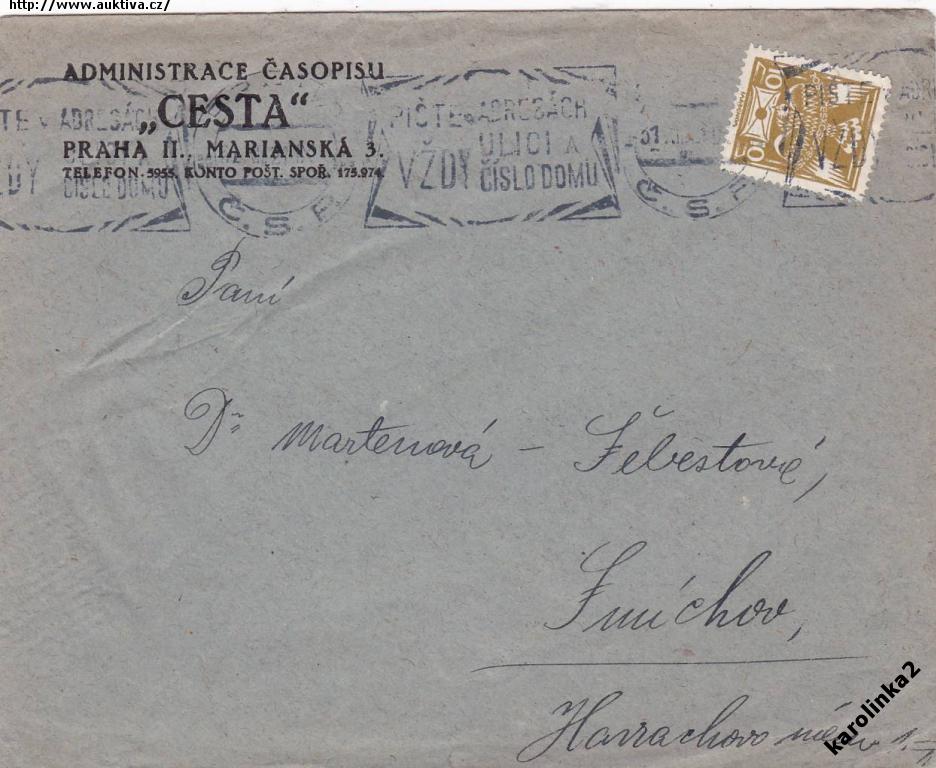 http://www.auktiva.cz/
ADMINISTRACE ČASOPISU
„CESTA“
PRAHA II., MARIANSKÁ 3.
TELEFON 5955, KONTO POŠT. SPOŘ. 175.974.
PIŠTE V ADRESÁCH
VŽDY ULICI A
ČÍSLO DOMU
Č. S. P.
10 10
Paní
Dr Martenová – Šebestová,
Smíchov,
Harrachovo nám
karolinka2